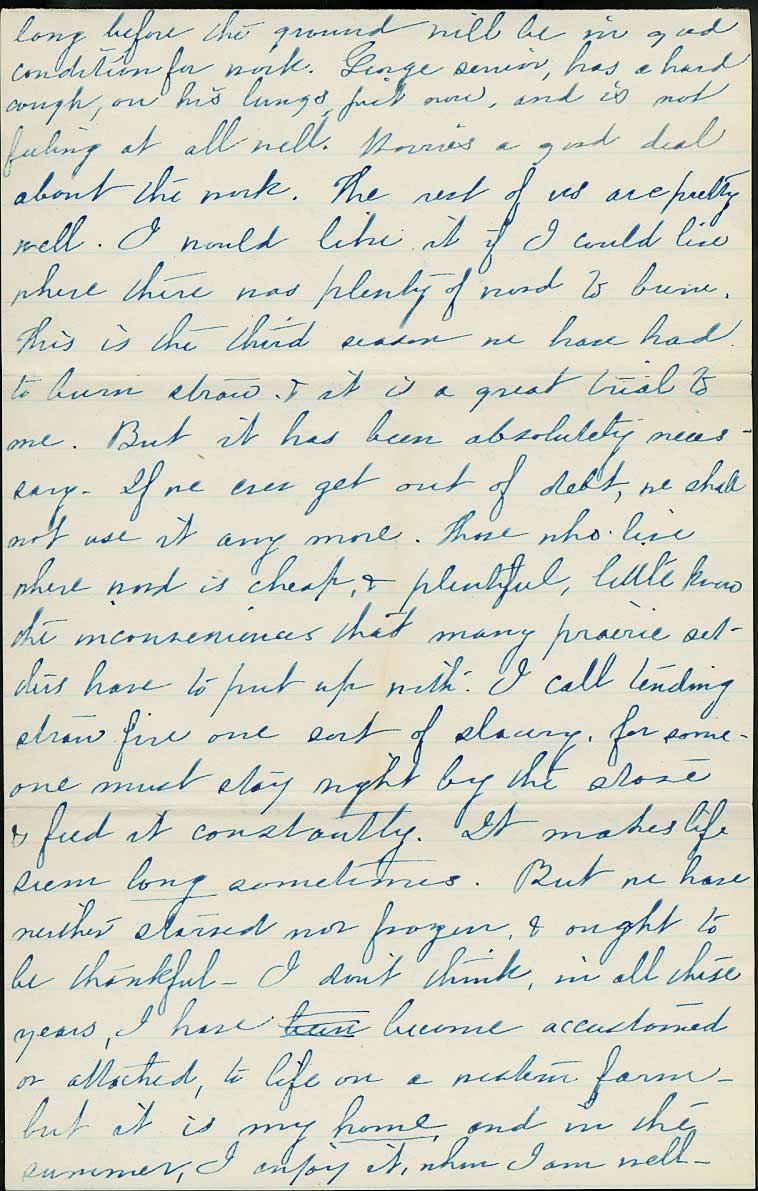 long before the ground will be in good
condition for work. George senior, has a hard
cough, on his lungs, just now, and is not
feeling at all well. Worries a good deal
about the work. The rest of us are pretty
well. I would like it if I could live
where there was plenty of wood to burn.
This is the third season we have had
to burn straw. & it is a great trial to
me. But it has been absolutely neces-
sary. If we ever get out of debt, we shall
not use it any more. Those who live
where wood is cheap, & plentiful, little know
the inconveniences that many prairie set-
tlers have to put up with. I call tending
straw fire one sort of slavery. for some-
one must stay right by the stove
& feed it constantly. It makes life
seem long sometimes. But we have
neither starved nor frozen, & ought to
be thankful - I don't think, in all these
years, I have been become accustomed
or attached, to life on a western farm -
but it is my home, and in the
summer, I enjoy it, when I am well -